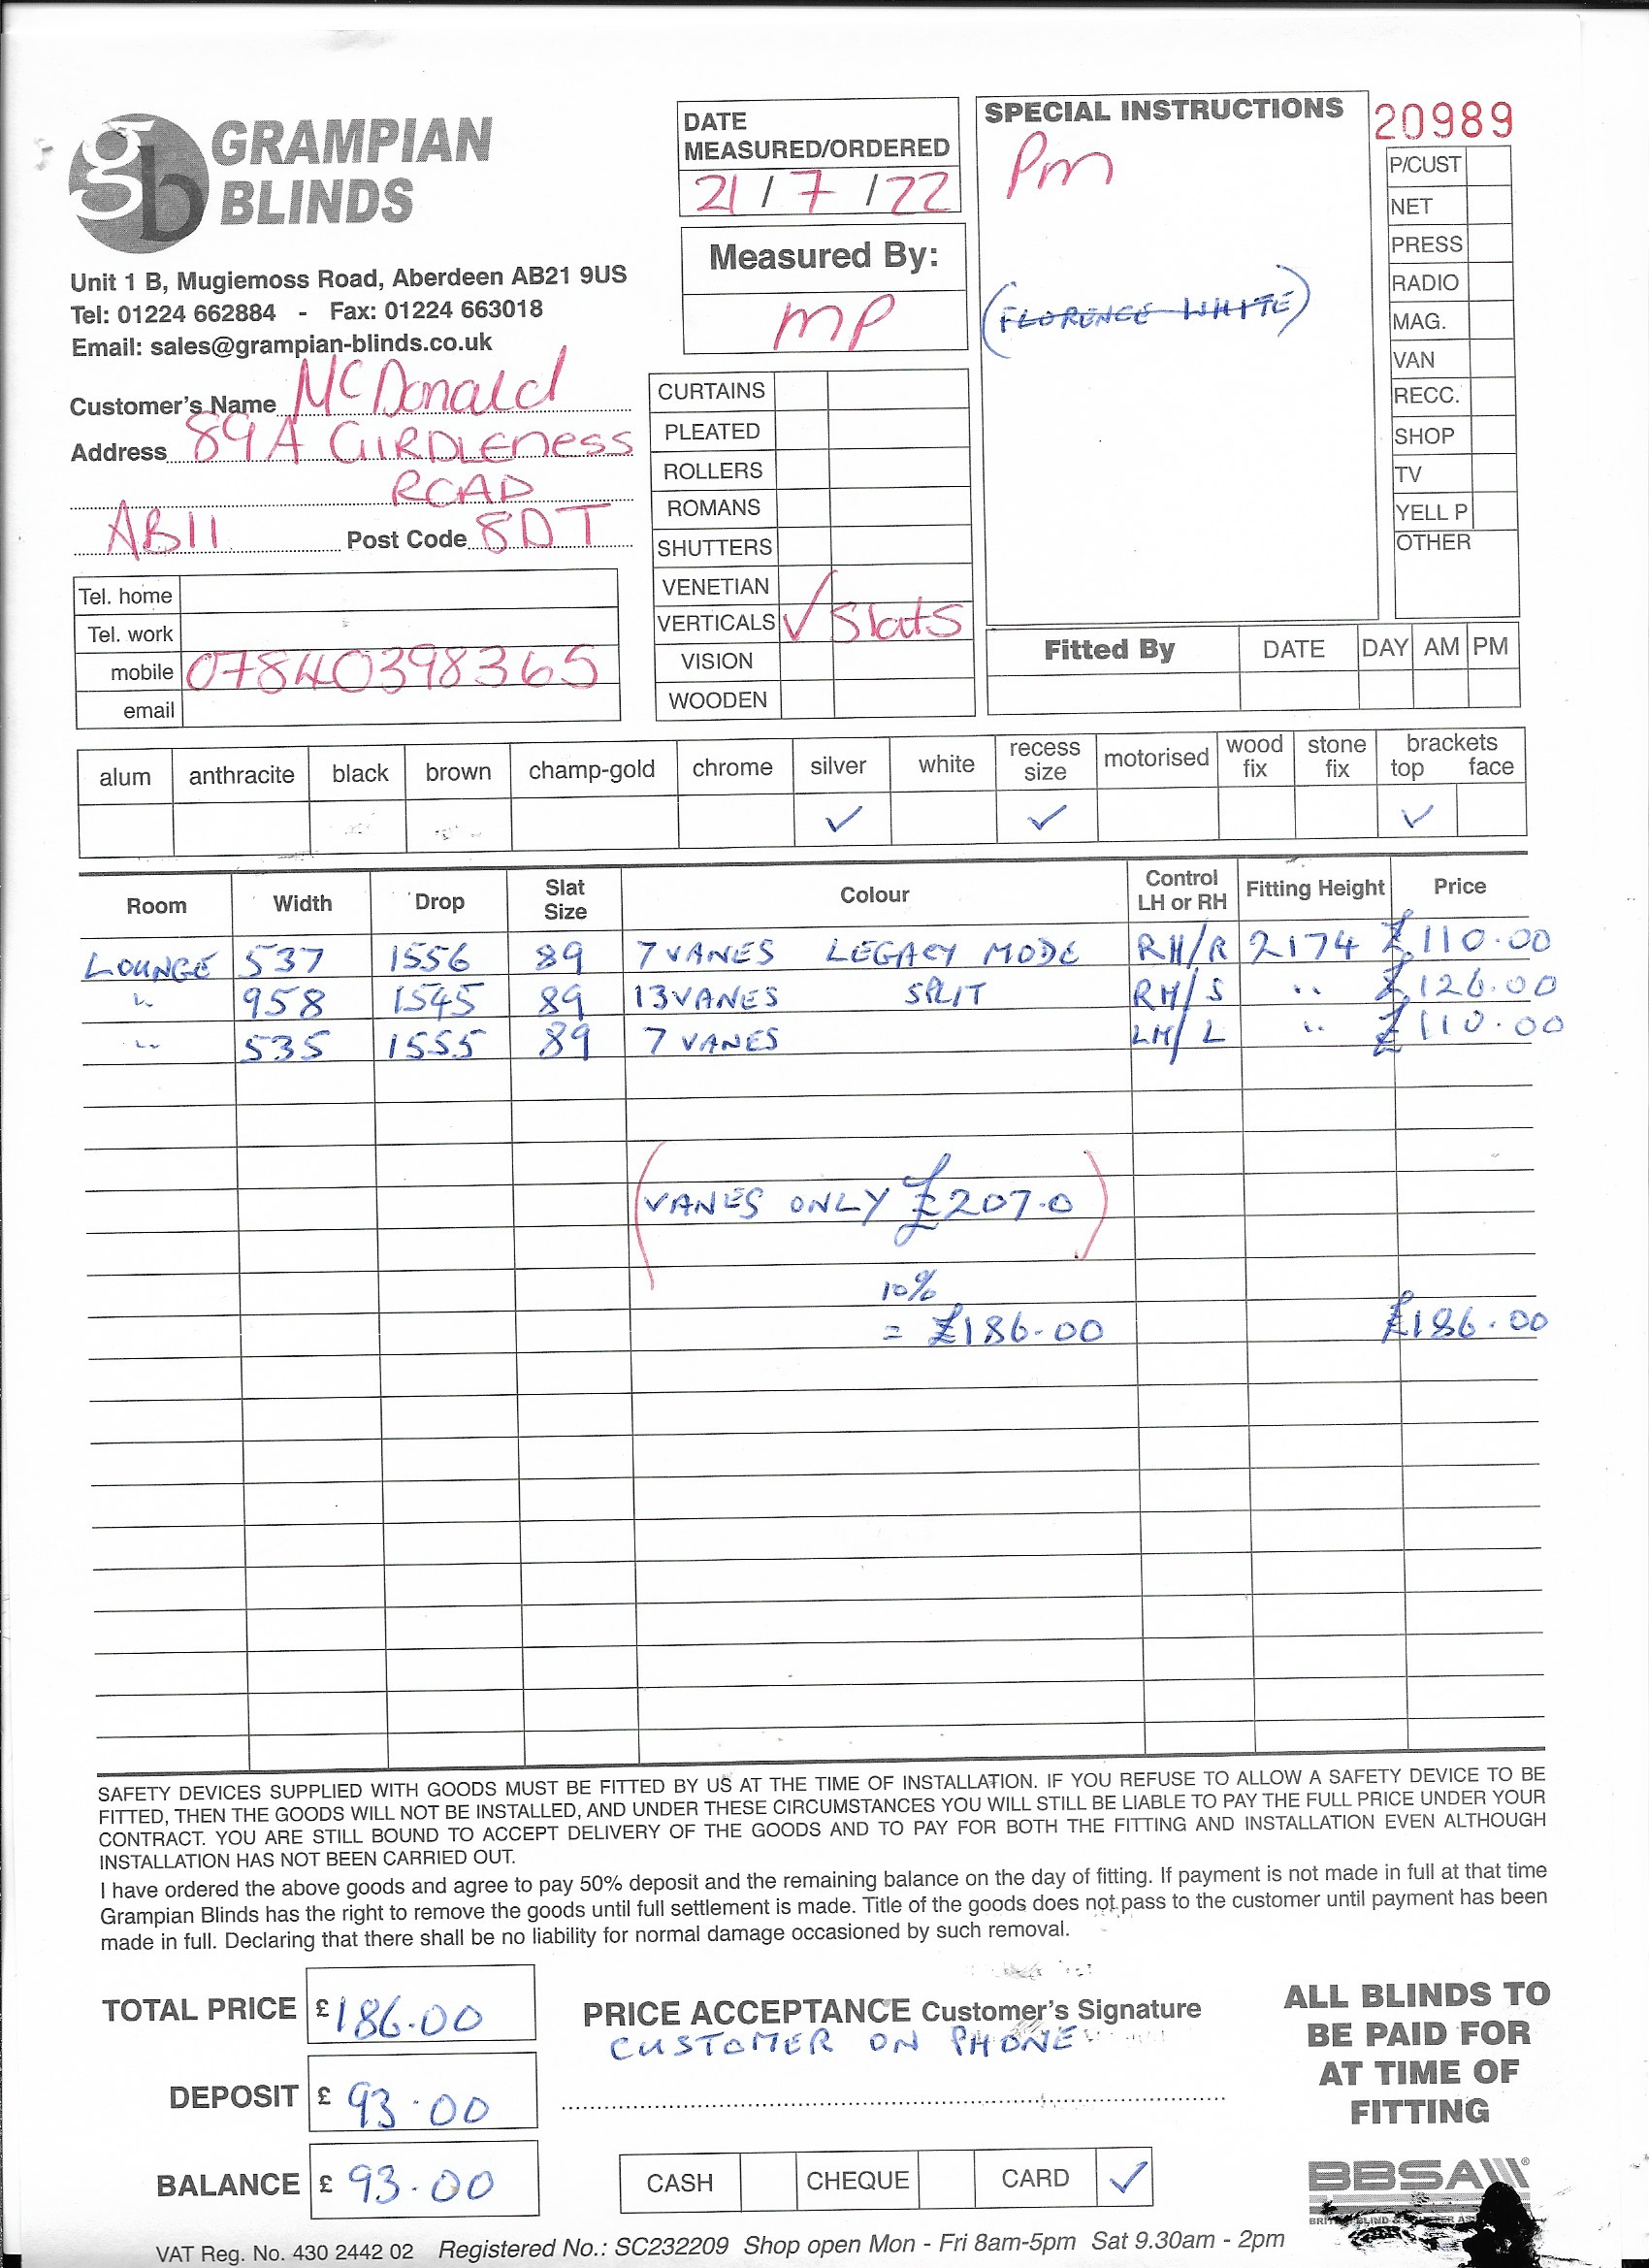 gb GRAMPIAN BLINDS
Unit 1 B, Mugiemoss Road, Aberdeen AB21 9US
Tel: 01224 662884 - Fax: 01224 663018
Email: sales@grampian-blinds.co.uk
Customer's Name McDonald
Address 89A GIRDLENESS
ROAD
AB11 Post Code 8DT
Tel. home
Tel. work
mobile 07840398365
email
DATE
MEASURED/ORDERED
21 / 7 / 22
Measured By:
MP
CURTAINS
PLEATED
ROLLERS
ROMANS
SHUTTERS
VENETIAN
VERTICALS ✓ Slats
VISION
WOODEN
SPECIAL INSTRUCTIONS
Pm
(FLORENCE WHITE)
20989
P/CUST
NET
PRESS
RADIO
MAG.
VAN
RECC.
SHOP
TV
YELL P
OTHER
Fitted By DATE DAY AM PM
alum anthracite black brown champ-gold chrome silver white recess size motorised wood fix stone fix brackets top face
✓ ✓ ✓
Room Width Drop Slat Size Colour Control LH or RH Fitting Height Price
LOUNGE 537 1556 89 7 VANES LEGACY MODE RH/R 2174 £110.00
" 958 1545 89 13 VANES SPLIT RH/S " £126.00
" 535 1555 89 7 VANES LH/L " £110.00
(VANES ONLY £207.0)
10%
= £186.00 £186.00
SAFETY DEVICES SUPPLIED WITH GOODS MUST BE FITTED BY US AT THE TIME OF INSTALLATION. IF YOU REFUSE TO ALLOW A SAFETY DEVICE TO BE
FITTED, THEN THE GOODS WILL NOT BE INSTALLED, AND UNDER THESE CIRCUMSTANCES YOU WILL STILL BE LIABLE TO PAY THE FULL PRICE UNDER YOUR
CONTRACT. YOU ARE STILL BOUND TO ACCEPT DELIVERY OF THE GOODS AND TO PAY FOR BOTH THE FITTING AND INSTALLATION EVEN ALTHOUGH
INSTALLATION HAS NOT BEEN CARRIED OUT.
I have ordered the above goods and agree to pay 50% deposit and the remaining balance on the day of fitting. If payment is not made in full at that time
Grampian Blinds has the right to remove the goods until full settlement is made. Title of the goods does not pass to the customer until payment has been
made in full. Declaring that there shall be no liability for normal damage occasioned by such removal.
TOTAL PRICE £186.00
DEPOSIT £ 93.00
BALANCE £ 93.00
PRICE ACCEPTANCE Customer's Signature
CUSTOMER ON PHONE
CASH CHEQUE CARD ✓
ALL BLINDS TO
BE PAID FOR
AT TIME OF
FITTING
BBSA
VAT Reg. No. 430 2442 02 Registered No.: SC232209 Shop open Mon - Fri 8am-5pm Sat 9.30am - 2pm